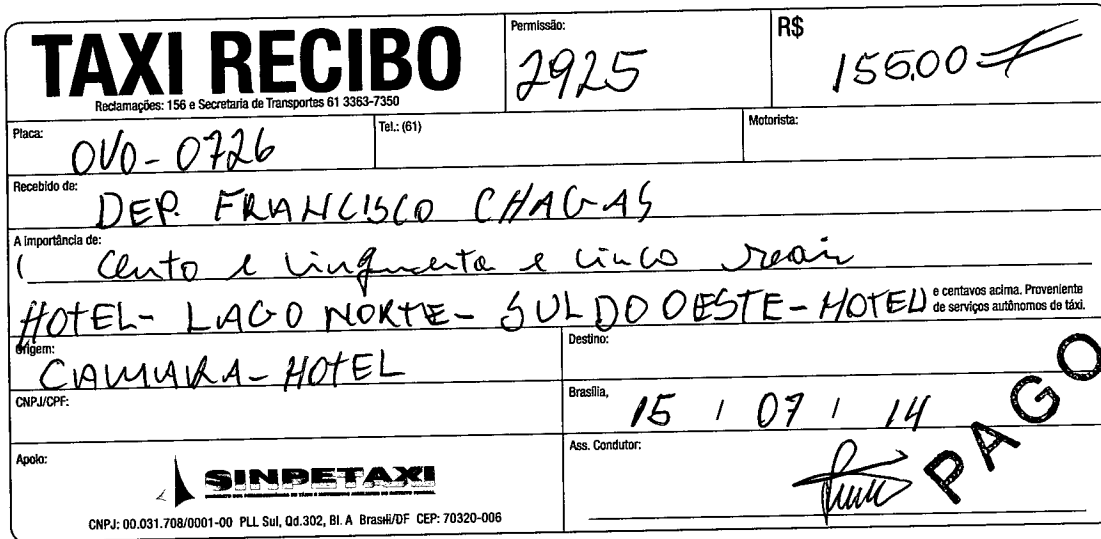 TAXI RECIBO
Reclamações: 156 e Secretaria de Transportes 61 3363-7350
Permissão:
2925
R$
155,00
Placa:
OVO-0726
Tel.: (61)
Motorista:
Recebido de:
DEP. FRANCISCO CHAGAS
A importância de:
( Cento e cinquenta e cinco reais
HOTEL- LAGO NORTE- SUL DO OESTE- HOTEL) e centavos acima. Proveniente
de serviços autônomos de táxi.
Origem:
CAMARA-HOTEL
Destino:
CNPJ/CPF:
Brasília,
15 / 07 / 14
PAGO
Apoio:
SINPETAXI
Ass. Condutor:
CNPJ: 00.031.708/0001-00 PLL Sul, Qd.302, Bl. A Brasíli/DF CEP: 70320-006